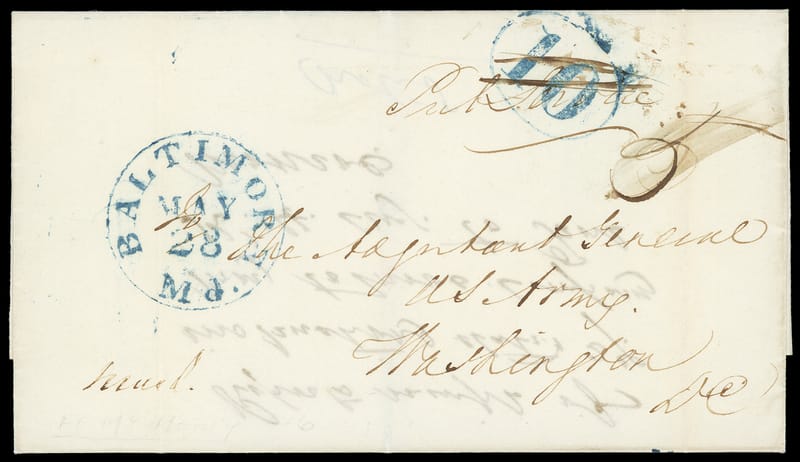 10
Pub. Service
5
BALTIMORE
MAY
28
Md.
To
The Adjutant General
US Army.
Washington
DC